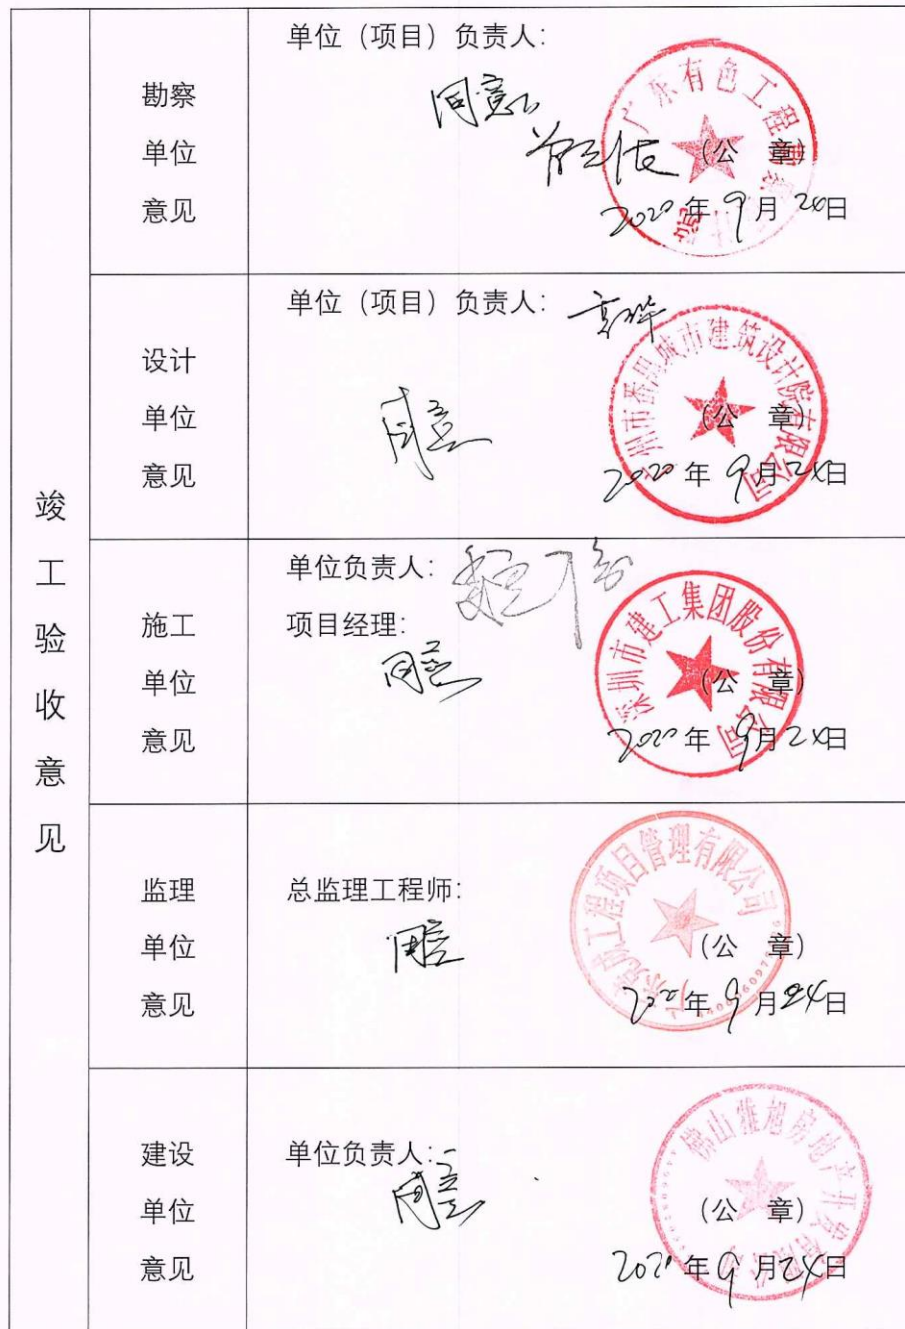 竣工验收意见
勘察单位意见
单位（项目）负责人：
同意
广东有色工程勘察设计院
（公 章）
2020年9月24日
设计单位意见
单位（项目）负责人：
同意
广州市番禺城市建筑设计院有限公司
（公 章）
2020年9月24日
施工单位意见
单位负责人：
项目经理：
同意
深圳市建工集团股份有限公司
（公 章）
2020年9月24日
监理单位意见
总监理工程师：
同意
工程项目管理有限公司
（公 章）
2020年9月24日
建设单位意见
单位负责人：
同意
佛山雅旭房地产开发有限公司
（公 章）
2020年9月24日